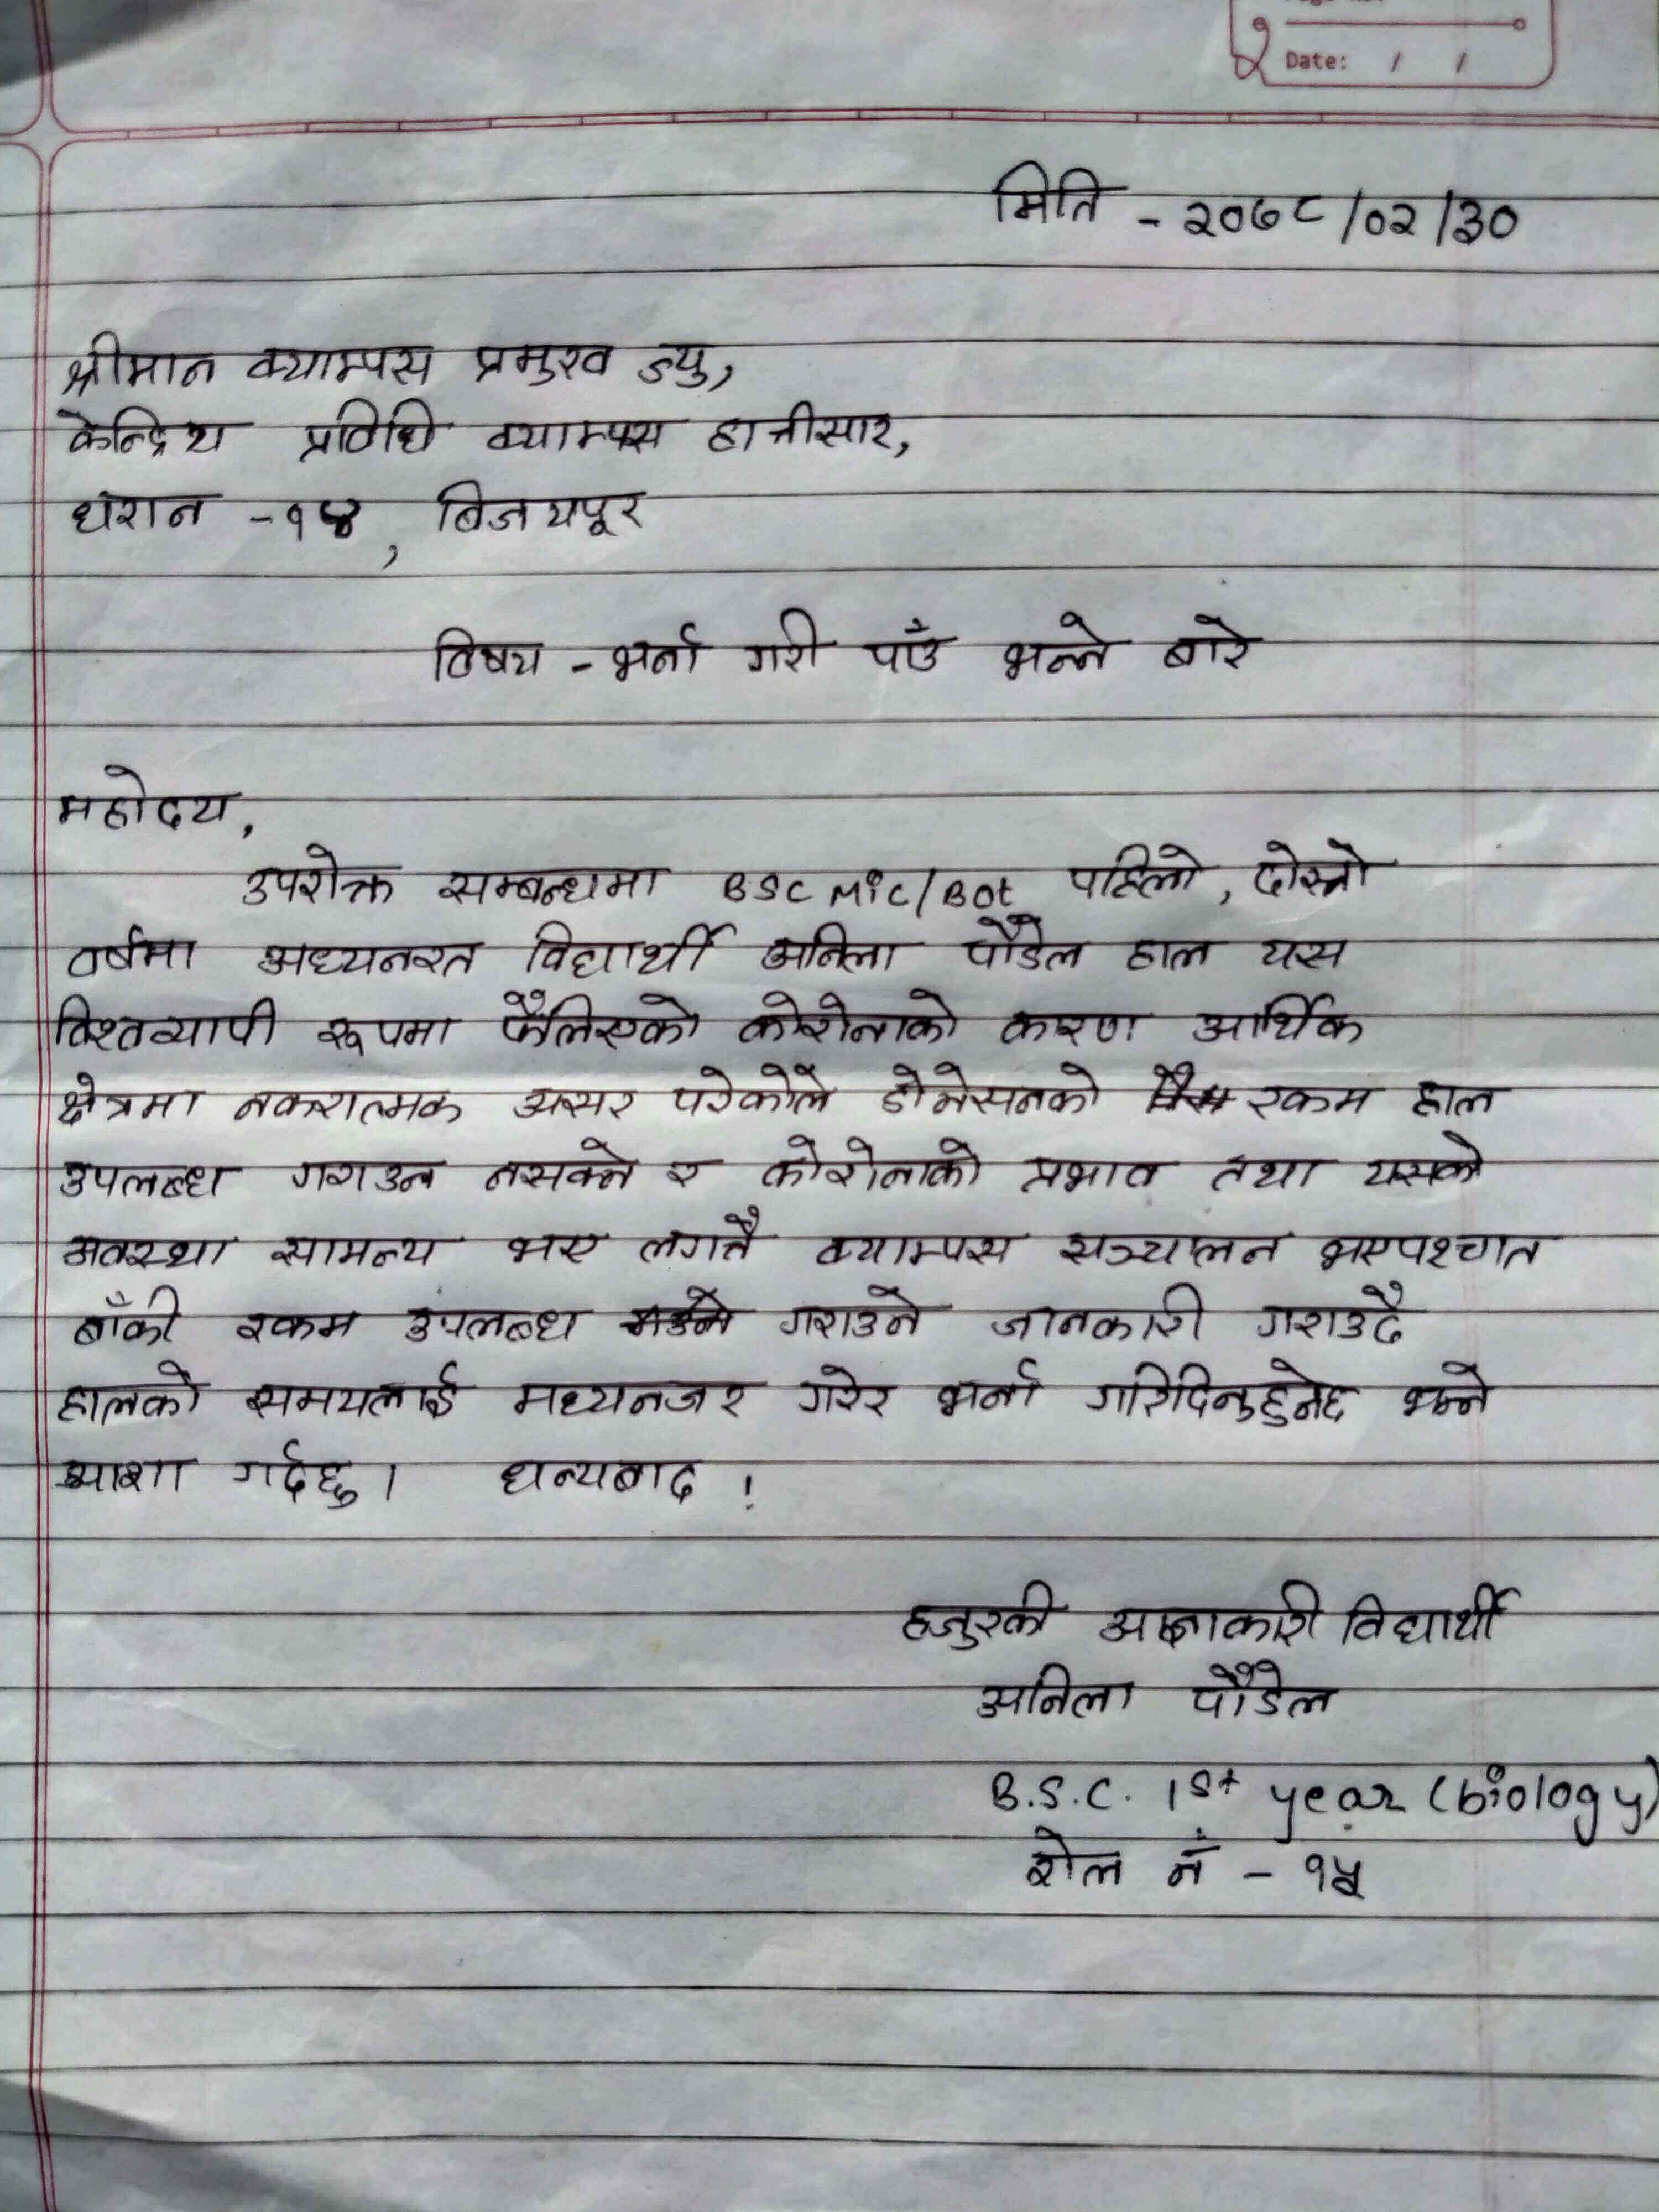 Date: / /
मिति - २०७८/०२/३०
श्रीमान क्याम्पस प्रमुख ज्यु,
केन्द्रिय प्रविधि क्याम्पस हात्तीसार,
धरान -१४, बिजयपूर
विषय - भर्ना गरी पाँउ भन्ने बारे
महोदय,
उपरोक्त सम्बन्धमा BSC Mic/Bot पहिलो, दोस्रो
वर्षमा अध्यनरत विद्यार्थी अनिला पौडेल हाल यस
विश्वव्यापी रूपमा फैलिएको कोरोनाको कारण आर्थिक
क्षेत्रमा नकरात्मक असर परेकोले डोनेसनको रकम हाल
उपलब्ध गराउन नसक्ने र कोरोनाको प्रभाव तथा यसको
अवस्था सामन्य भए लगत्तै क्याम्पस सञ्चालन भएपश्चात
बाँकी रकम उपलब्ध गराउने जानकारी गराउदै
हालको समयलाई मध्यनजर गरेर भर्ना गरिदिनुहुनेछ भन्ने
आशा गर्दछु। धन्यबाद !
हजुरकी आज्ञाकारी विद्यार्थी
अनिला पौडेल
B.S.C. 1st year (biology)
रोल नं - १५